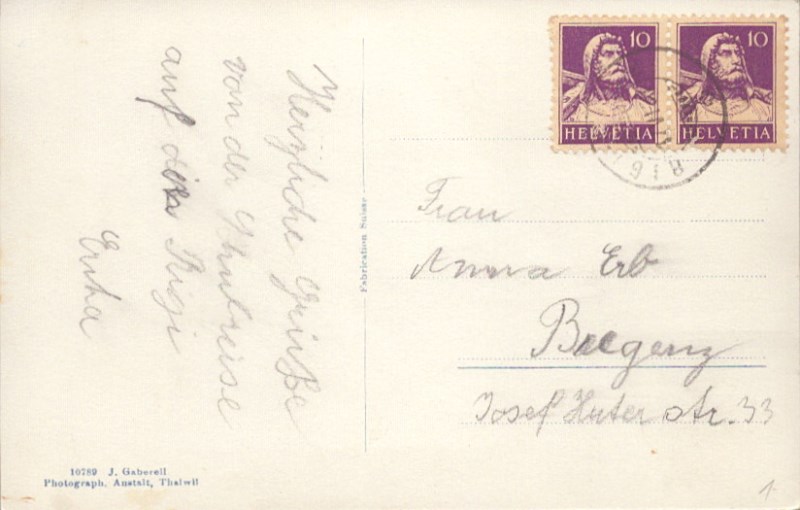 Herzliche Grüße
von der Schulreise
auf den Rigi
Erika
Fabrication Suisse
10789 J. Gaberell
Photograph. Anstalt, Thalwil
10 10
HELVETIA HELVETIA
Frau
Anna Erb
Bregenz
Josef Huter str. 33
1.